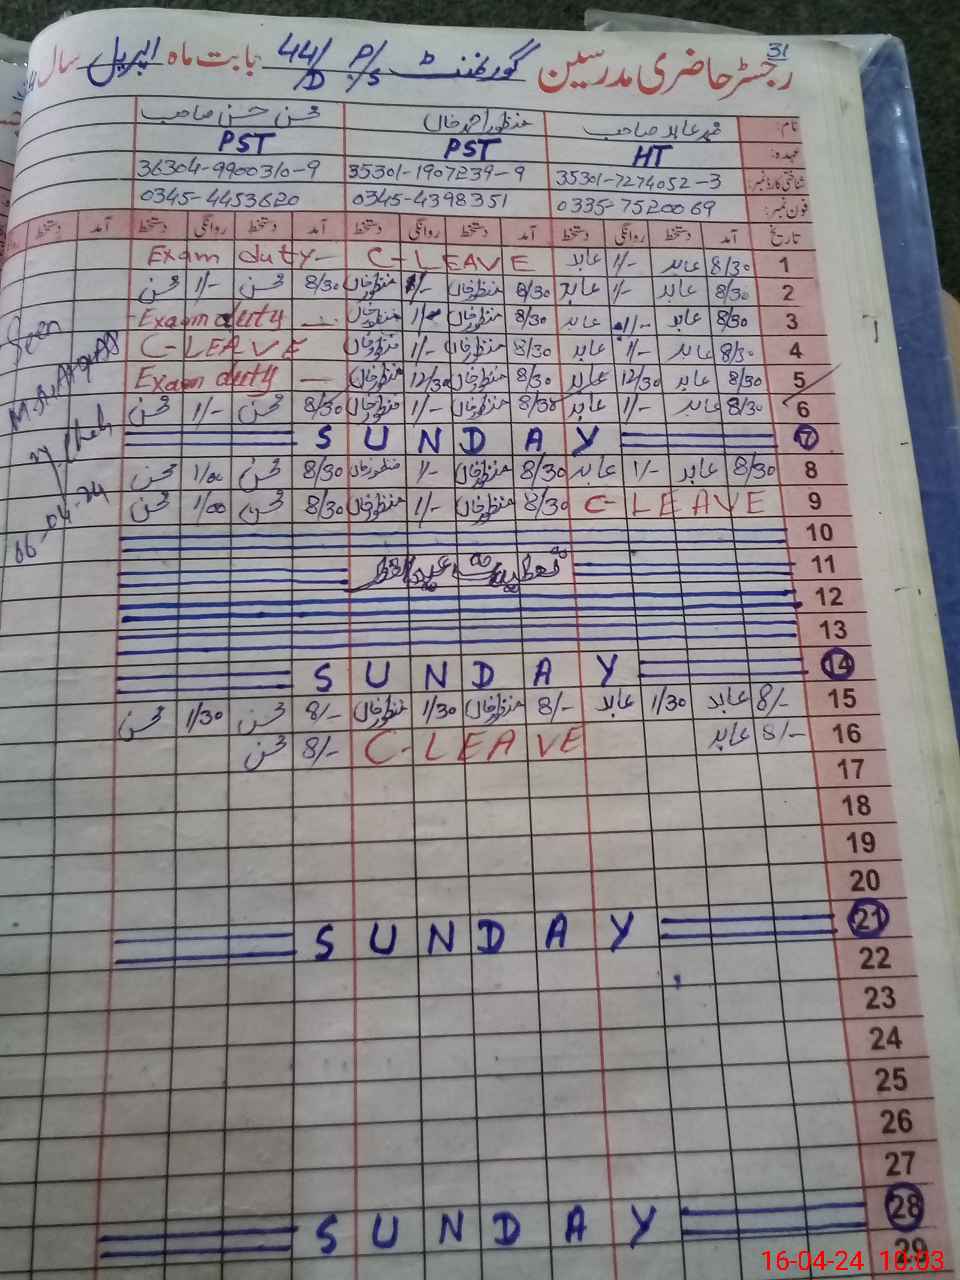 31
رجسٹر حاضری مدرسین گورنمنٹ P/S 44/D بابت ماہ اپریل سال
نام: محمد عابد صاحب منظور احمد خاں محسن حسن صاحب
عہدہ: HT PST PST
شناختی کارڈ نمبر: 35301-7274052-3 35301-1907239-9 36304-9900310-9
فون نمبر: 0335-7520069 0345-4398351 0345-4453620
تاریخ آمد دستخط روانگی دستخط آمد دستخط روانگی دستخط آمد دستخط روانگی دستخط آمد دستخط
1 8/30 عابد 1/- عابد C-LEAVE Exam duty-
2 8/30 عابد 1/- عابد 8/30 منظور خاں 1/- منظور خاں 8/30 محسن 1/- محسن
3 8/30 عابد 1/- عابد 8/30 منظور خاں 1/- منظور خاں Exam duty —
4 8/30 عابد 1/- عابد 8/30 منظور خاں 1/- منظور خاں C-LEAVE
5 8/30 عابد 12/30 عابد 8/30 منظور خاں 12/30 منظور خاں Exam duty —
6 8/30 عابد 1/- عابد 8/30 منظور خاں 1/- منظور خاں 8/30 محسن 1/- محسن
7 SUNDAY
8 8/30 عابد 1/- عابد 8/30 منظور خاں 1/- منظور خاں 8/30 محسن 1/00 محسن
9 C-LEAVE 8/30 منظور خاں 1/- منظور خاں 8/30 محسن 1/00 محسن
10
11 تعطیلات عید الفطر
12
13
14 SUNDAY
15 8/- عابد 1/30 عابد 8/- منظور خاں 1/30 منظور خاں 8/- محسن 1/30 محسن
16 8/- عابد C-LEAVE 8/- محسن
17
18
19
20
21 SUNDAY
22
23
24
25
26
27
28 SUNDAY
29
Seen
06-04-24
16-04-24 10:03